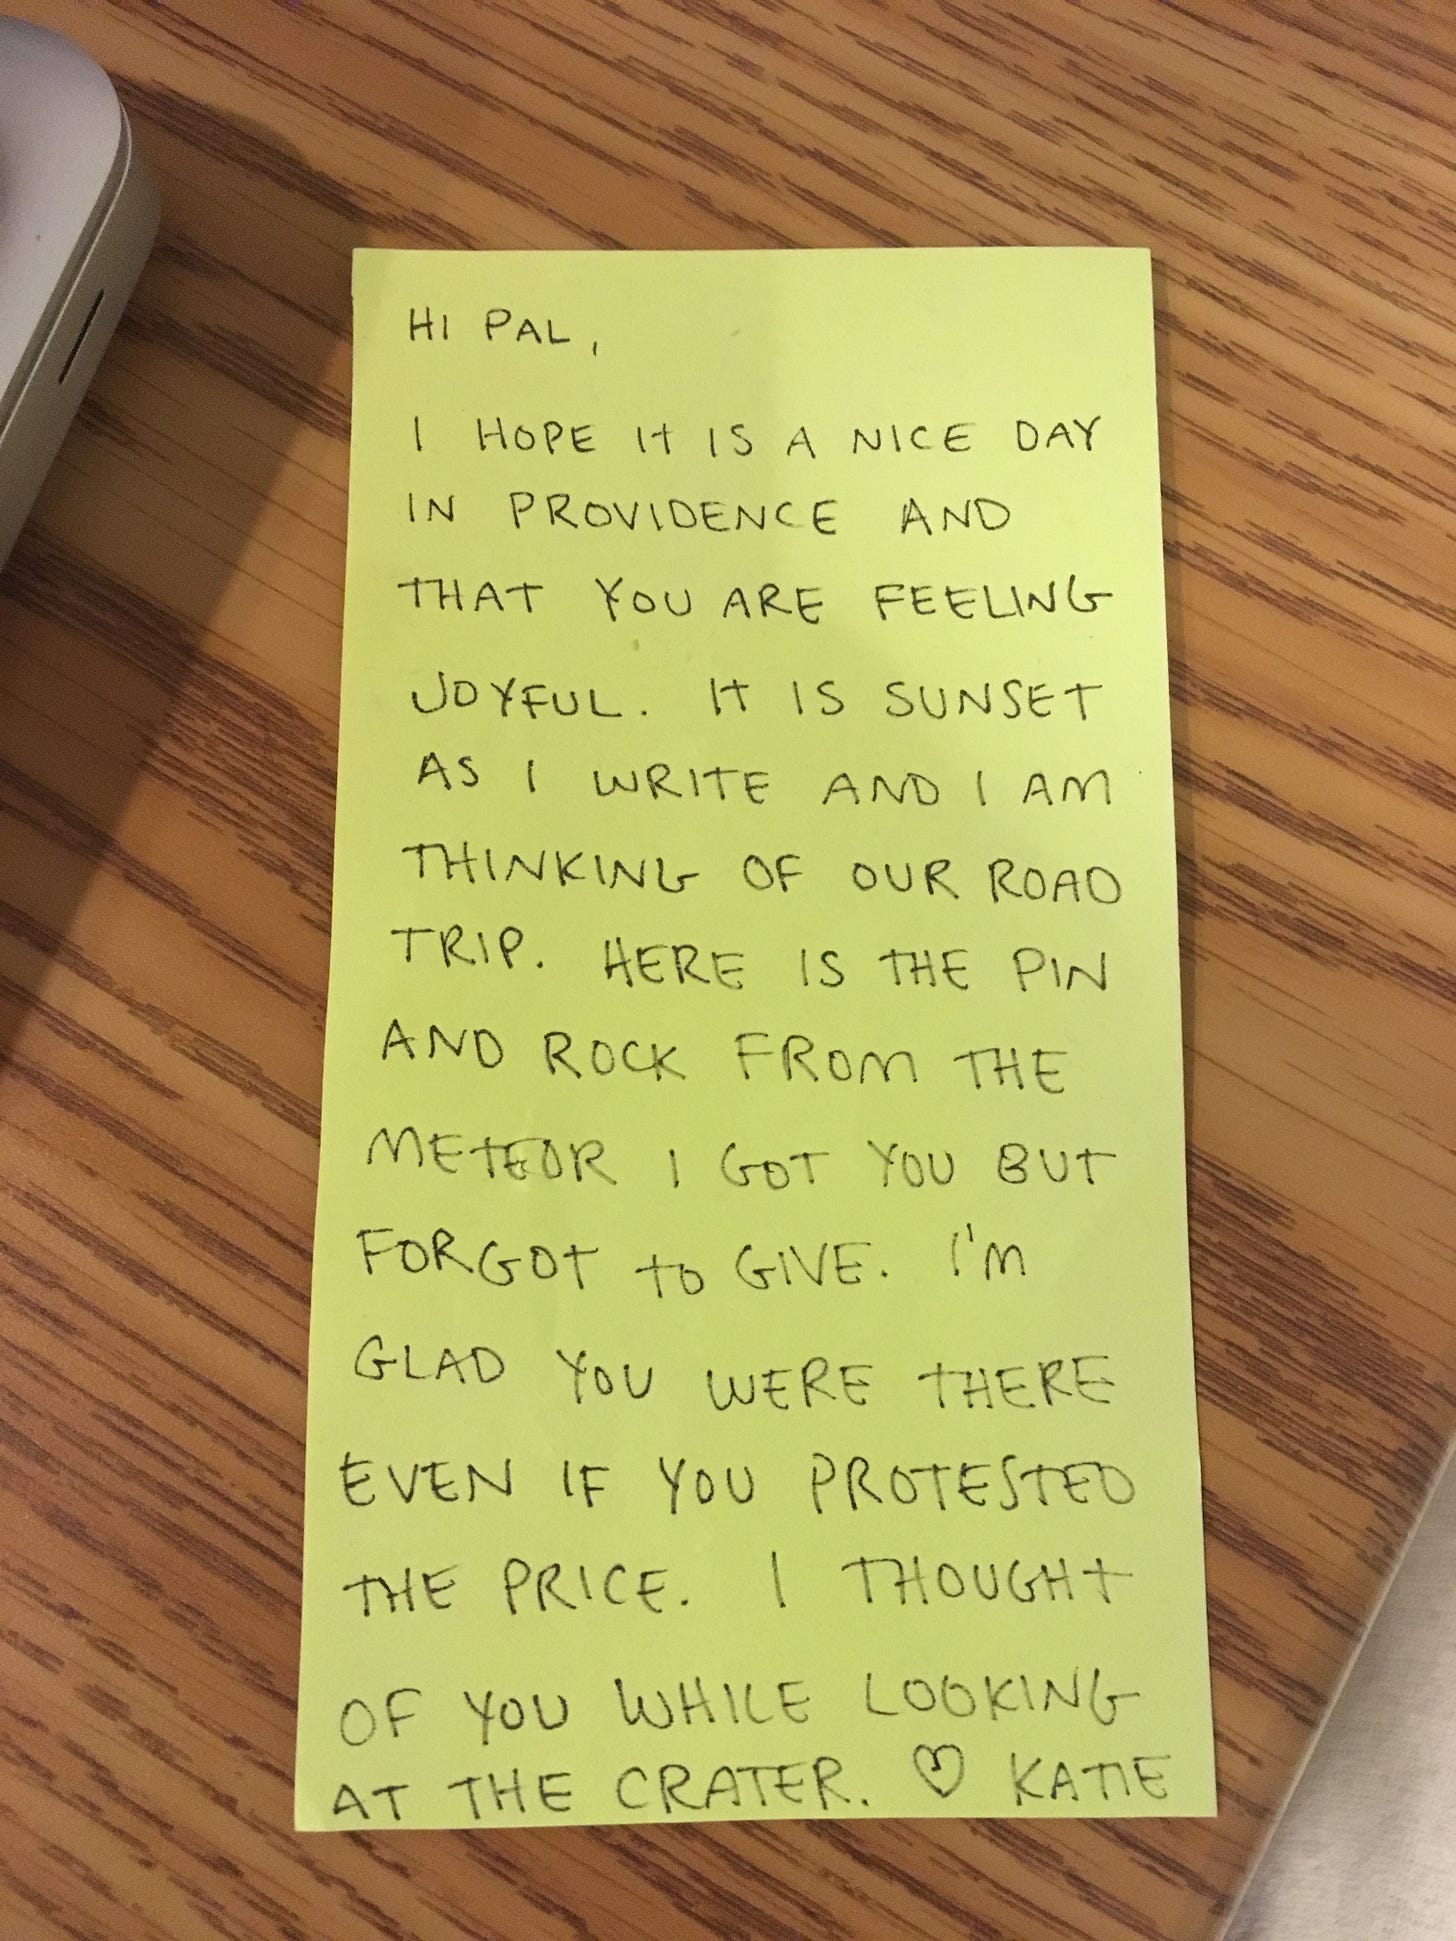 HI PAL,
I HOPE IT IS A NICE DAY
IN PROVIDENCE AND
THAT YOU ARE FEELING
JOYFUL. IT IS SUNSET
AS I WRITE AND I AM
THINKING OF OUR ROAD
TRIP. HERE IS THE PIN
AND ROCK FROM THE
METEOR I GOT YOU BUT
FORGOT TO GIVE. I'M
GLAD YOU WERE THERE
EVEN IF YOU PROTESTED
THE PRICE. I THOUGHT
OF YOU WHILE LOOKING
AT THE CRATER. ♡ KATIE